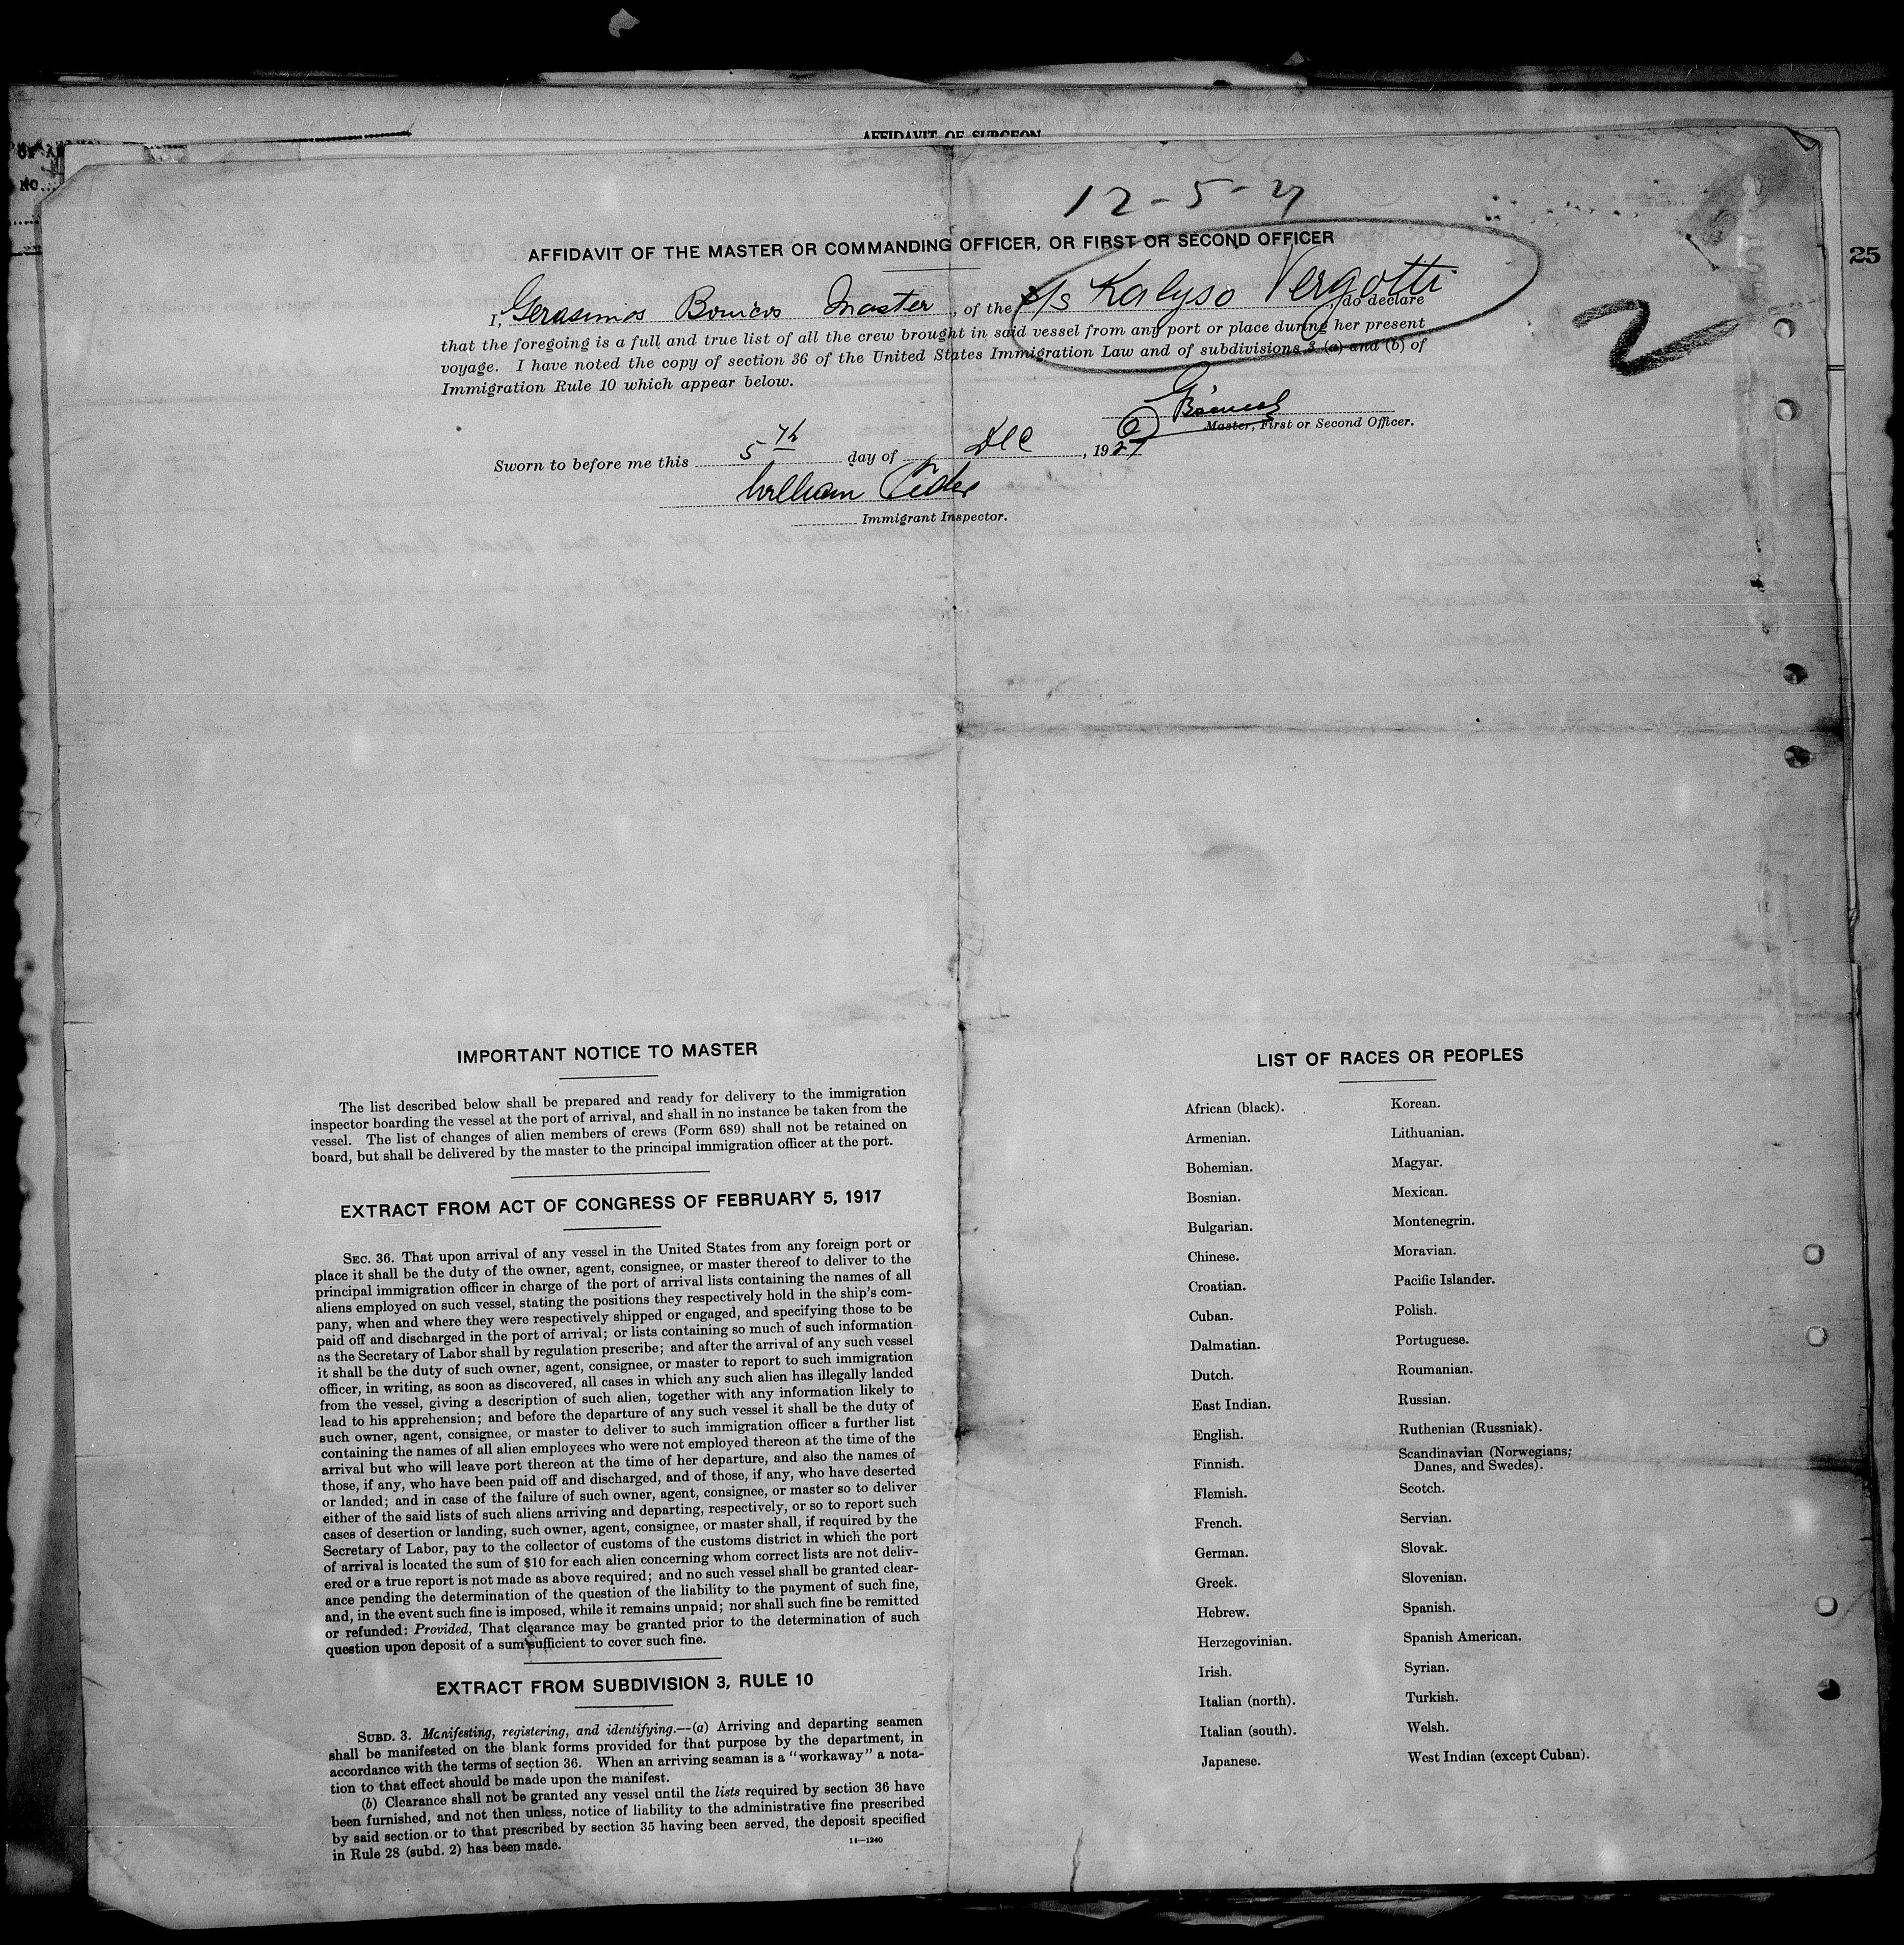 AFFIDAVIT OF SURGEON
NO.
25
12-5-27
AFFIDAVIT OF THE MASTER OR COMMANDING OFFICER, OR FIRST OR SECOND OFFICER
I, Gerasimos Bonicos Master, of the S/S Kalypso Vergotti, do declare
that the foregoing is a full and true list of all the crew brought in said vessel from any port or place during her present
voyage. I have noted the copy of section 36 of the United States Immigration Law and of subdivisions 3 (a) and (b) of
Immigration Rule 10 which appear below.
2
Master, First or Second Officer.
Sworn to before me this 5th day of Dec, 1927
William
Immigrant Inspector.
IMPORTANT NOTICE TO MASTER
The list described below shall be prepared and ready for delivery to the immigration
inspector boarding the vessel at the port of arrival, and shall in no instance be taken from the
vessel. The list of changes of alien members of crews (Form 689) shall not be retained on
board, but shall be delivered by the master to the principal immigration officer at the port.
EXTRACT FROM ACT OF CONGRESS OF FEBRUARY 5, 1917
SEC. 36. That upon arrival of any vessel in the United States from any foreign port or
place it shall be the duty of the owner, agent, consignee, or master thereof to deliver to the
principal immigration officer in charge of the port of arrival lists containing the names of all
aliens employed on such vessel, stating the positions they respectively hold in the ship's com-
pany, when and where they were respectively shipped or engaged, and specifying those to be
paid off and discharged in the port of arrival; or lists containing so much of such information
as the Secretary of Labor shall by regulation prescribe; and after the arrival of any such vessel
it shall be the duty of such owner, agent, consignee, or master to report to such immigration
officer, in writing, as soon as discovered, all cases in which any such alien has illegally landed
from the vessel, giving a description of such alien, together with any information likely to
lead to his apprehension; and before the departure of any such vessel it shall be the duty of
such owner, agent, consignee, or master to deliver to such immigration officer a further list
containing the names of all alien employees who were not employed thereon at the time of the
arrival but who will leave port thereon at the time of her departure, and also the names of
those, if any, who have been paid off and discharged, and of those, if any, who have deserted
or landed; and in case of the failure of such owner, agent, consignee, or master so to deliver
either of the said lists of such aliens arriving and departing, respectively, or so to report such
cases of desertion or landing, such owner, agent, consignee, or master shall, if required by the
Secretary of Labor, pay to the collector of customs of the customs district in which the port
of arrival is located the sum of $10 for each alien concerning whom correct lists are not deliv-
ered or a true report is not made as above required; and no such vessel shall be granted clear-
ance pending the determination of the question of the liability to the payment of such fine,
and, in the event such fine is imposed, while it remains unpaid; nor shall such fine be remitted
or refunded: Provided, That clearance may be granted prior to the determination of such
question upon deposit of a sum sufficient to cover such fine.
EXTRACT FROM SUBDIVISION 3, RULE 10
SUBD. 3. Manifesting, registering, and identifying.—(a) Arriving and departing seamen
shall be manifested on the blank forms provided for that purpose by the department, in
accordance with the terms of section 36. When an arriving seaman is a "workaway" a nota-
tion to that effect should be made upon the manifest.
(b) Clearance shall not be granted any vessel until the lists required by section 36 have
been furnished, and not then unless, notice of liability to the administrative fine prescribed
by said section or to that prescribed by section 35 having been served, the deposit specified
in Rule 28 (subd. 2) has been made.
14—1240
LIST OF RACES OR PEOPLES
African (black).
Armenian.
Bohemian.
Bosnian.
Bulgarian.
Chinese.
Croatian.
Cuban.
Dalmatian.
Dutch.
East Indian.
English.
Finnish.
Flemish.
French.
German.
Greek.
Hebrew.
Herzegovinian.
Irish.
Italian (north).
Italian (south).
Japanese.
Korean.
Lithuanian.
Magyar.
Mexican.
Montenegrin.
Moravian.
Pacific Islander.
Polish.
Portuguese.
Roumanian.
Russian.
Ruthenian (Russniak).
Scandinavian (Norwegians;
Danes, and Swedes).
Scotch.
Servian.
Slovak.
Slovenian.
Spanish.
Spanish American.
Syrian.
Turkish.
Welsh.
West Indian (except Cuban).